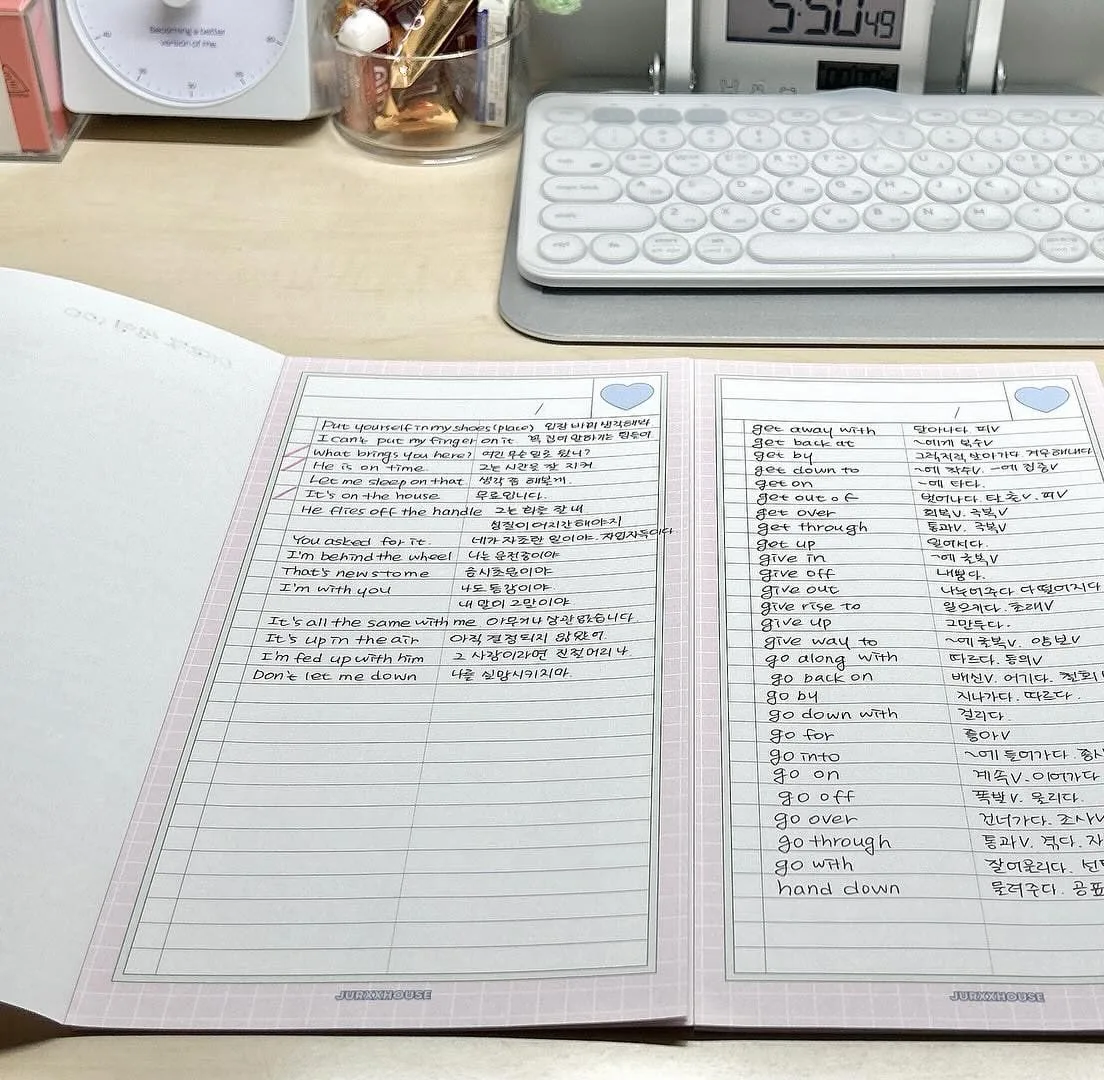 Becoming a better
version of me
5:50 49
Put yourself in my shoes (place) 입장 바꿔 생각해봐
I can't put my finger on it 꼭 집어 말하기는 힘들어
What brings you here? 여긴 무슨 일로 왔니?
He is on time 그는 시간을 잘 지켜
Let me sleep on that 생각 좀 해볼게.
It's on the house 무료입니다.
He flies off the handle 그는 화를 잘 내
성질이 어지간해야지
You asked for it. 네가 자초한 일이야. 자업자득이다
I'm behind the wheel 나는 운전중이야
That's news to me 금시초문이야
I'm with you 나도 동감이야
내 말이 그말이야
It's all the same with me 아무거나 상관없습니다
It's up in the air 아직 결정되지 않았어.
I'm fed up with him 그 사람이라면 진절머리 나.
Don't let me down 나를 실망시키지마.
JURXXHOUSE
get away with 달아나다. 피V
get back at ~에게 복수V
get by 그럭저럭 살아가다. 겨우해내다
get down to ~에 착수V. ~에 집중V
get on ~에 타다.
get out of 벗어나다. 탈출V. 피V
get over 회복V. 극복V
get through 통과V. 극복V
get up 일어서다.
give in ~에 굴복V
give off 내뿜다.
give out 나누어주다 다 떨어지다
give rise to 일으키다. 초래V
give up 그만두다.
give way to ~에 굴복V. 양보V
go along with 따르다. 동의V
go back on 배신V. 어기다. 철회
go by 지나가다. 따르다.
go down with 걸리다.
go for 좋아V
go into ~에 들어가다.
go on 계속V. 이어가다
go off 폭발V. 울리다.
go over 건너가다. 조사V
go through 통과V. 겪다.
go with 잘어울리다.
hand down 물려주다.
JURXXHOUSE